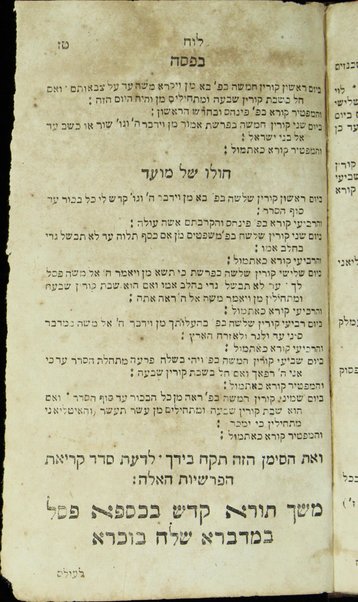 לוח
טז
בפסח
ביום ראשון קורין חמשה בפ' בא מן ויקרא משה עד על צבאותם ׃ ואם
חל בשבת קורין שבעה ומתחילים מן והיה היום הזה :
והמפטיר קורא בפ' פינחס ובחודש הראשון :
ביום שני קורין חמשה בפרשת אמור מן וידבר ה' וגו' שור או כשב עד
אל בני ישראל :
והמפטיר קורא כאתמול :
חולו של מועד
ביום ראשון קורין שלשה בפ' בא מן וידבר ה' וגו' קדש לי כל בכור עד
סוף הסדר :
והרביעי קורא בפ' פינחס והקרבתם אשה עולה :
ביום שני קורין שלשה בפ'משפטים מן אם כסף תלוה עד לא תבשל גדי
בחלב אמו :
והרביעי קורא כאתמול :
ביום שלישי קורין שלשה בפרשת כי תשא מן ויאמר ה' אל משה פסל
לך ׳ עד לא תבשל גדי בחלב אמו ואם הוא שבת קורין שבעה
ומתחילין מן ויאמר משה אל ה' ראה אתה :
והרביעי קורא כאתמול :
ביום רביעי קורין שלשה בפ' בהעלותך מן וידבר ה' אל משה במדבר
סיני עד ולגר ולאזרח הארץ :
והרביעי קורא כאתמול :
ביום שביעי קורין חמשה בפ' ויהי בשלח פרעה מתחלת הסדר עד כי
אני ה' רפאך ואם חל בשבת קורין שבעה :
והמפטיר קורא כאתמול :
ביום שמיני קורין חמשה בפ' ראה מן כל הבכור עד סוף הסדר ׃ ואם
הוא שבת קורין שבעה ומתחילים מן עשר תעשר ,והאיטליאני
מתחילין כי ימכר :
והמפטיר קורא כאתמול :
ואת הסימן הזה תקח בידך ׳ לדעת סדר קריאת
הפרשיות האלה :
משך תורא קדש בכספא פסל
במדברא שלח בוכרא